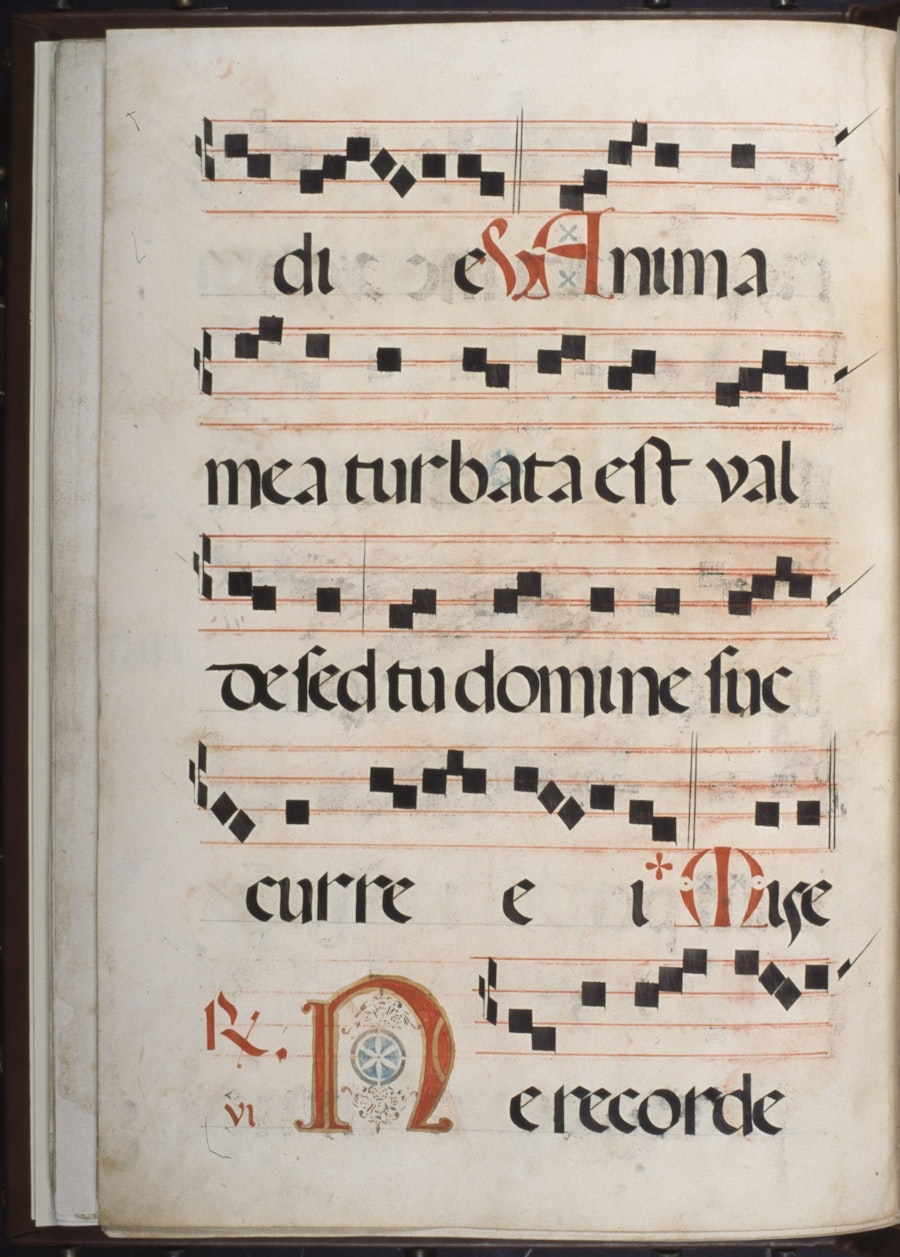 di e V Anima
mea turbata est val
de sed tu domine suc
curre e i * Mise
R. N e recorde
VI